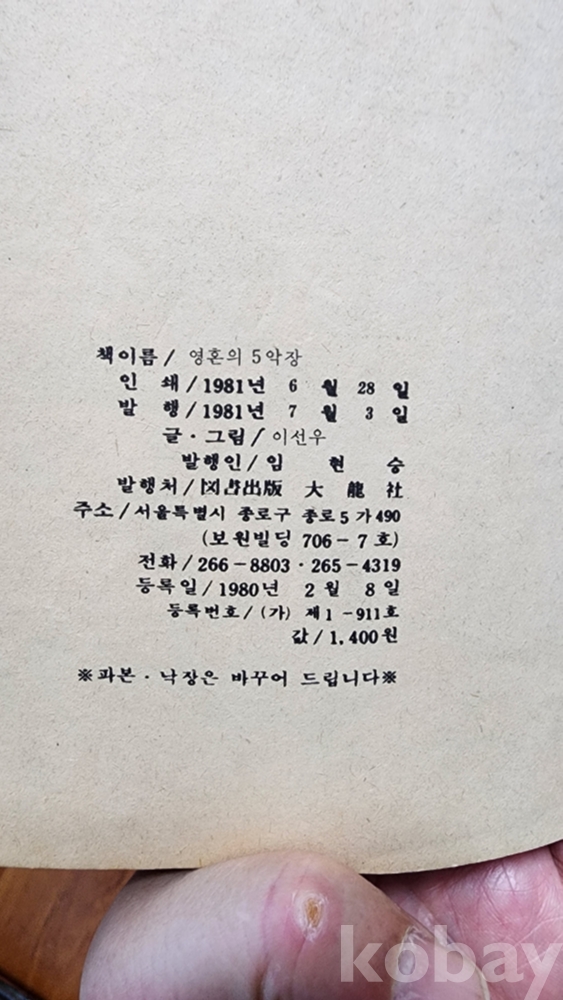 책이름 / 영혼의 5 악장
인 쇄 / 1981년 6 월 28 일
발 행 / 1981년 7 월 3 일
글 · 그림 / 이선우
발행인 / 임 현 승
발행처 / 図書出版 大 龍 社
주소 / 서울특별시 종로구 종로 5 가 490
(보원빌딩 706 - 7 호)
전화 / 266 - 8803 · 265 - 4319
등록일 / 1980년 2 월 8 일
등록번호 / (가) 제 1 - 911호
값 / 1,400원
※파본 · 낙장은 바꾸어 드립니다※
kobay